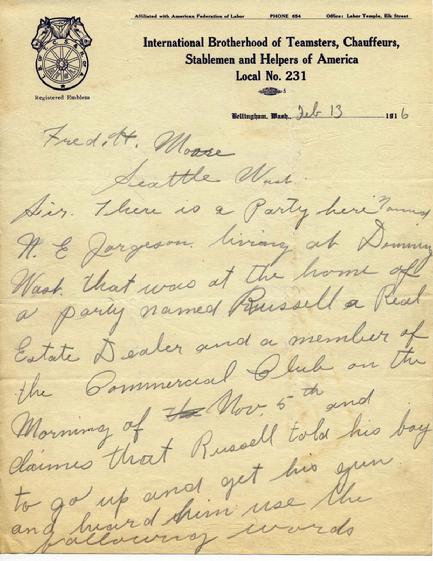 Affiliated with American Federation of Labor PHONE 654 Office: Labor Temple, Elk Street
International Brotherhood of Teamsters, Chauffeurs,
Stablemen and Helpers of America
Local No. 231
Registered Emblem
Bellingham, Wash., Feb 13 1916
Fred. H. Moore
Seattle Wash.
Sir. There is a Party here Named
N. E Jorgeson. living at Deming
Wash. that was at the home of
a party named Russell a Real
Estate Dealer and a member of
the Commercial Club on the
Morning of the Nov. 5th and
claimes that Russell told his boy
to go up and get his gun
and heard him use the
following words